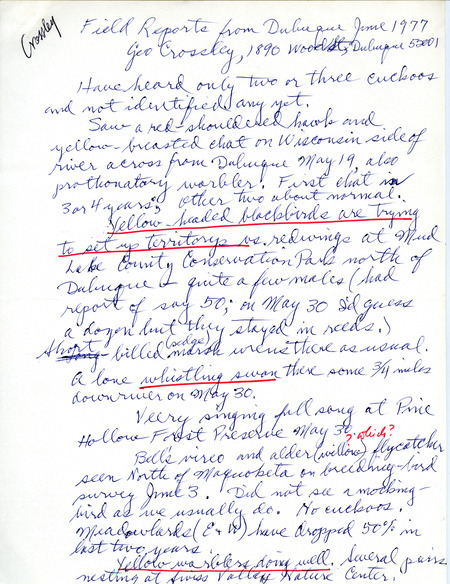 Crossley
Field Reports from Dubuque June 1977
Geo Crossley, 1890 Wood St, Dubuque 52001
Have heard only two or three cuckoos
and not identified any yet.
Saw a red-shouldered hawk and
yellow-breasted chat on Wisconsin side of
river across from Dubuque May 19, also
prothonotary warbler. First chat in
3 or 4 years; other two about normal.
Yellow-headed blackbirds are trying
to set up territorys vs. redwings at Mud
Lake County Conservation Park north of
Dubuque - quite a few males (had
report of say 50; on May 30 I'd guess
a dozen but they stayed in reeds.)
Short-billed (sedge) marsh wrens there as usual.
A lone whistling swan there some 3/4 miles
downriver on May 30.
Veery singing full song at Pine
Hollow Forest Preserve May 30
? which?
Bell's vireo and alder (willow) flycatcher
seen North of Maquoketa on breeding-bird
survey June 3. Did not see a mocking-
bird as we usually do. No cuckoos.
Meadowlarks (E & W) have dropped 50% in
last two years.
Yellow warblers doing well. Several pairs
nesting at Swiss Valley Nature Center.